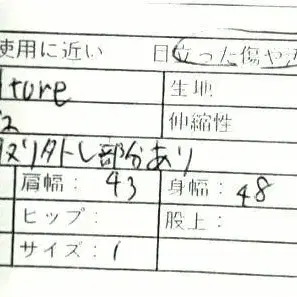 使用に近い 目立った傷や
lture 生地
伸縮性
取り外し部分あり
肩幅: 43 身幅: 48
ヒップ: 股上:
サイズ: 1